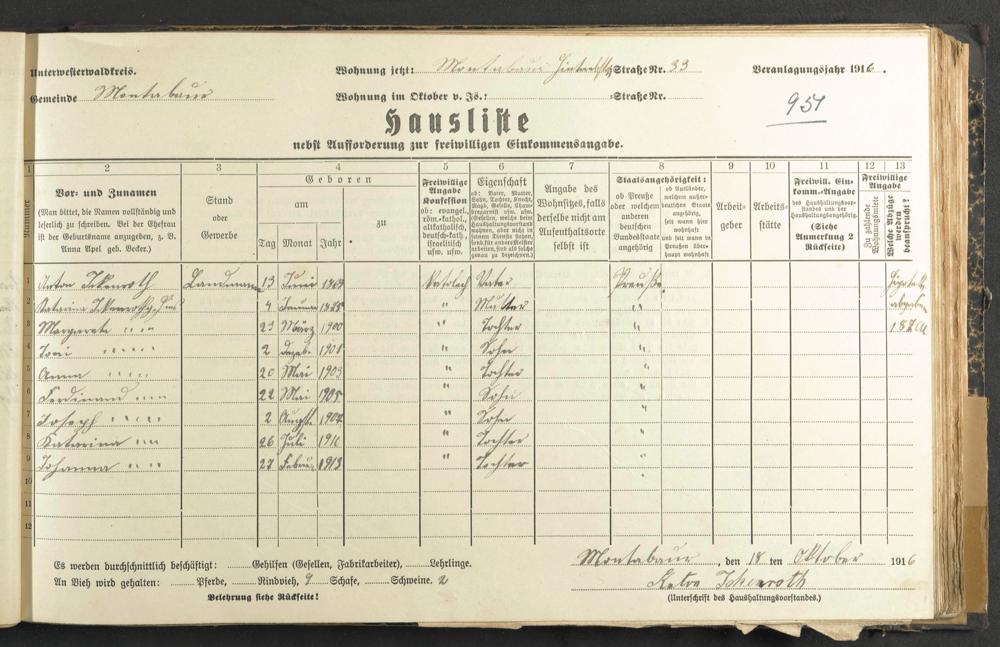 Unterwesterwaldkreis.
Wohnung jetzt: Montabaur Straße Nr. 33
Veranlagungsjahr 1916.
Gemeinde Montabaur
Wohnung im Oktober v. Js.: Straße Nr.
951
Hausliste
nebst Aufforderung zur freiwilligen Einkommensangabe.
1 2 3 4 5 6 7 8 9 10 11 12 13
Nummer
Vor- und Zunamen
(Man bittet, die Namen vollständig und
leserlich zu schreiben. Bei der Ehefrau
ist der Geburtsname anzugeben, z. B.
Anna Apel geb. Becker.)
Stand
oder
Gewerbe
Geboren
am
Tag Monat Jahr
zu
Freiwillige
Angabe
Konfession
ob: evangel.,
röm.-kathol.,
altkatholisch,
deutsch-kath.,
israelitisch
usw. usw.
Eigenschaft
ob: Vater, Mutter,
Sohn, Tochter, Knecht,
Angabe des
Wohnsitzes, falls
derselbe nicht am
Aufenthaltsorte
selbst ist
Staatsangehörigkeit:
ob Preuße
oder welchem
anderen
deutschen
Bundesstaate
angehörig
ob Ausländer,
welchem außer-
deutschen Staate
angehörig,
seit wann hier
wohnhaft
und seit wann in
Preußen über-
haupt wohnhaft
Arbeit-
geber
Arbeits-
stätte
Freiwill. Ein-
komm.-Angabe
des Haushaltungsvor-
standes und der
Haushaltungsangehörig.
(Siehe
Anmerkung 2
Rückseite)
Freiwillige
Angabe
Zu zahlende
Wohnungsmiete
Welche Abzüge
werden
beansprucht?
1 Anton Ickenroth Landmann 13 Juni Katolisch Vater Preuße
2 Katarina 4 Januar " Mutter "
3 Margarete " " " 23 März 1900 " Tochter " 187 M
4 " " " " 2 Dezeb. 1901 " Sohn "
5 Anna " " " " 20 Mai 1903 " Tochter "
6 Ferdinand " " " " 22 Mai 1905 " Sohn "
7 Joseph " " " " 2 1907 " Sohn "
8 Katarina " " " 26 Juli " Tochter "
9 Johanna " " " " 27 Februar 1913 " Tochter "
10
11
12
Es werden durchschnittlich beschäftigt: Gehilfen (Gesellen, Fabrikarbeiter), Lehrlinge.
An Vieh wird gehalten: Pferde, Rindvieh, 9 Schafe, Schweine. 2
Belehrung siehe Rückseite!
Montabaur, den 18 ten Oktober 1916
Ickenroth
(Unterschrift des Haushaltungsvorstandes.)